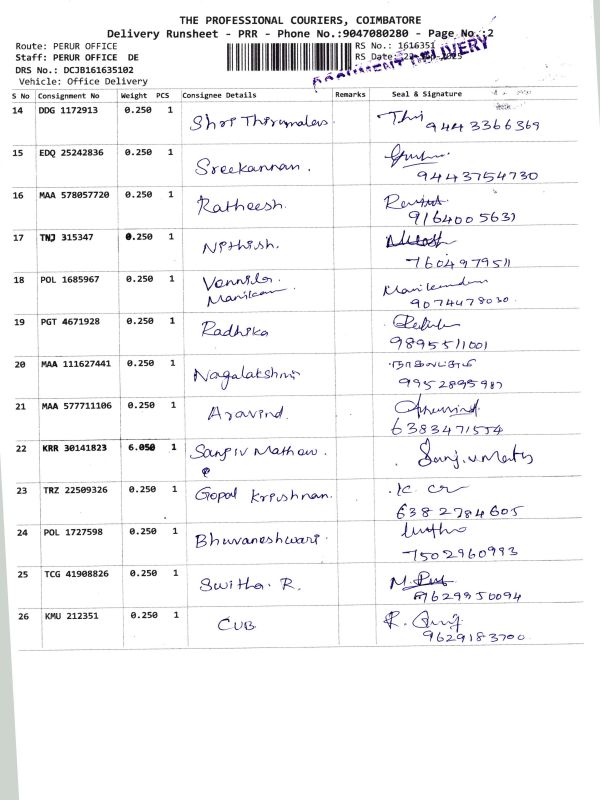 THE PROFESSIONAL COURIERS, COIMBATORE
Delivery Runsheet - PRR - Phone No.:9047080280 - Page No.:2
Route: PERUR OFFICE
RS No.: 1616351
Staff: PERUR OFFICE DE
RS Date:
DRS No.: DCJB161635102
Vehicle: Office Delivery
DELIVERY
S No Consignment No Weight PCS Consignee Details Remarks Seal & Signature
14 DDG 1172913 0.250 1 Shri Thirumalai
9443366369
15 EDQ 25242836 0.250 1 Sreekannan.
9443754730
16 MAA 578057720 0.250 1 Ratheesh.
9164005631
17 TNJ 315347 0.250 1 Nithish.
7604979511
18 POL 1685967 0.250 1 Vennila
Manikan
9074478030
19 PGT 4671928 0.250 1 Radhika
9895511001
20 MAA 111627441 0.250 1 Nagalakshmi
9952895987
21 MAA 577711106 0.250 1 Aravind.
6383471554
22 KRR 30141823 6.050 1 Sanjiv Mathew.
23 TRZ 22509326 0.250 1 Gopal Krishnan.
6382784605
24 POL 1727598 0.250 1 Bhuvaneshwari.
7502960993
25 TCG 41908826 0.250 1 Switha. R.
9629950094
26 KMU 212351 0.250 1 CUB
9629183700